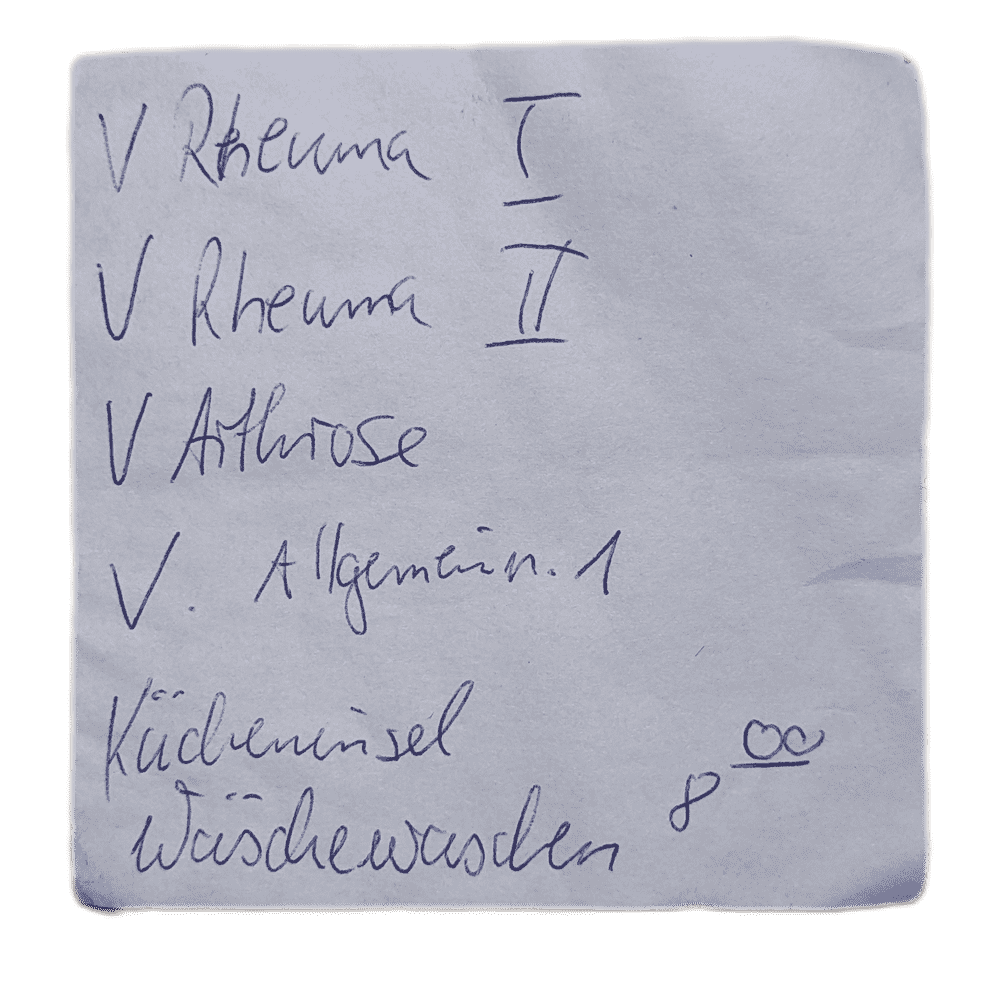 V Rheuma I
V Rheuma II
V Arthrose
V. Allgemein. 1
Kücheninsel
Wäschewaschen 8 00